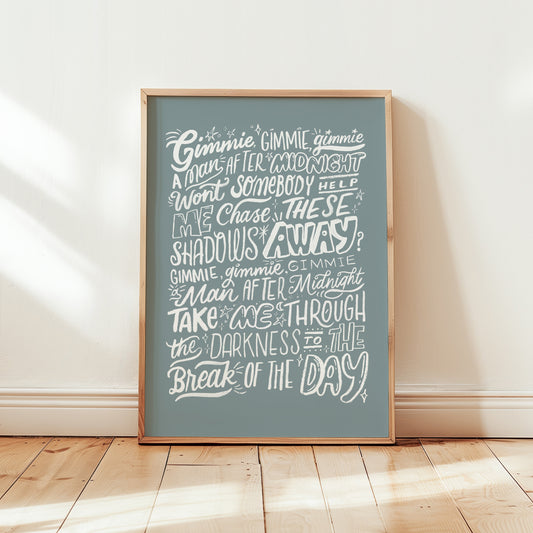 Gimmie, GIMMIE, gimmie
A Man AFTER MIDNIGHT
Wont' SOMEBODY HELP
ME Chase THESE
SHADOWS AWAY?
GIMMIE, gimmie, GIMMIE
A Man AFTER Midnight
TAKE ME THROUGH
the DARKNESS TO THE
Break OF THE DAY